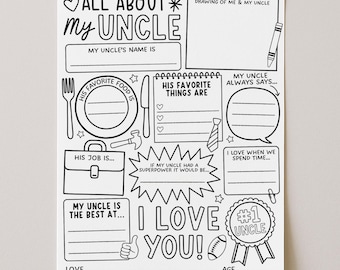 ALL ABOUT
my UNCLE
DRAWING OF ME & MY UNCLE
MY UNCLE'S NAME IS
HIS FAVORITE FOOD IS
HIS FAVORITE
THINGS ARE
MY UNCLE
ALWAYS SAYS...
HIS JOB IS...
IF MY UNCLE HAD A
SUPERPOWER IT WOULD BE...
I LOVE WHEN WE
SPEND TIME...
MY UNCLE IS
THE BEST AT...
I LOVE
YOU!
#1
UNCLE
LOVE
AGE